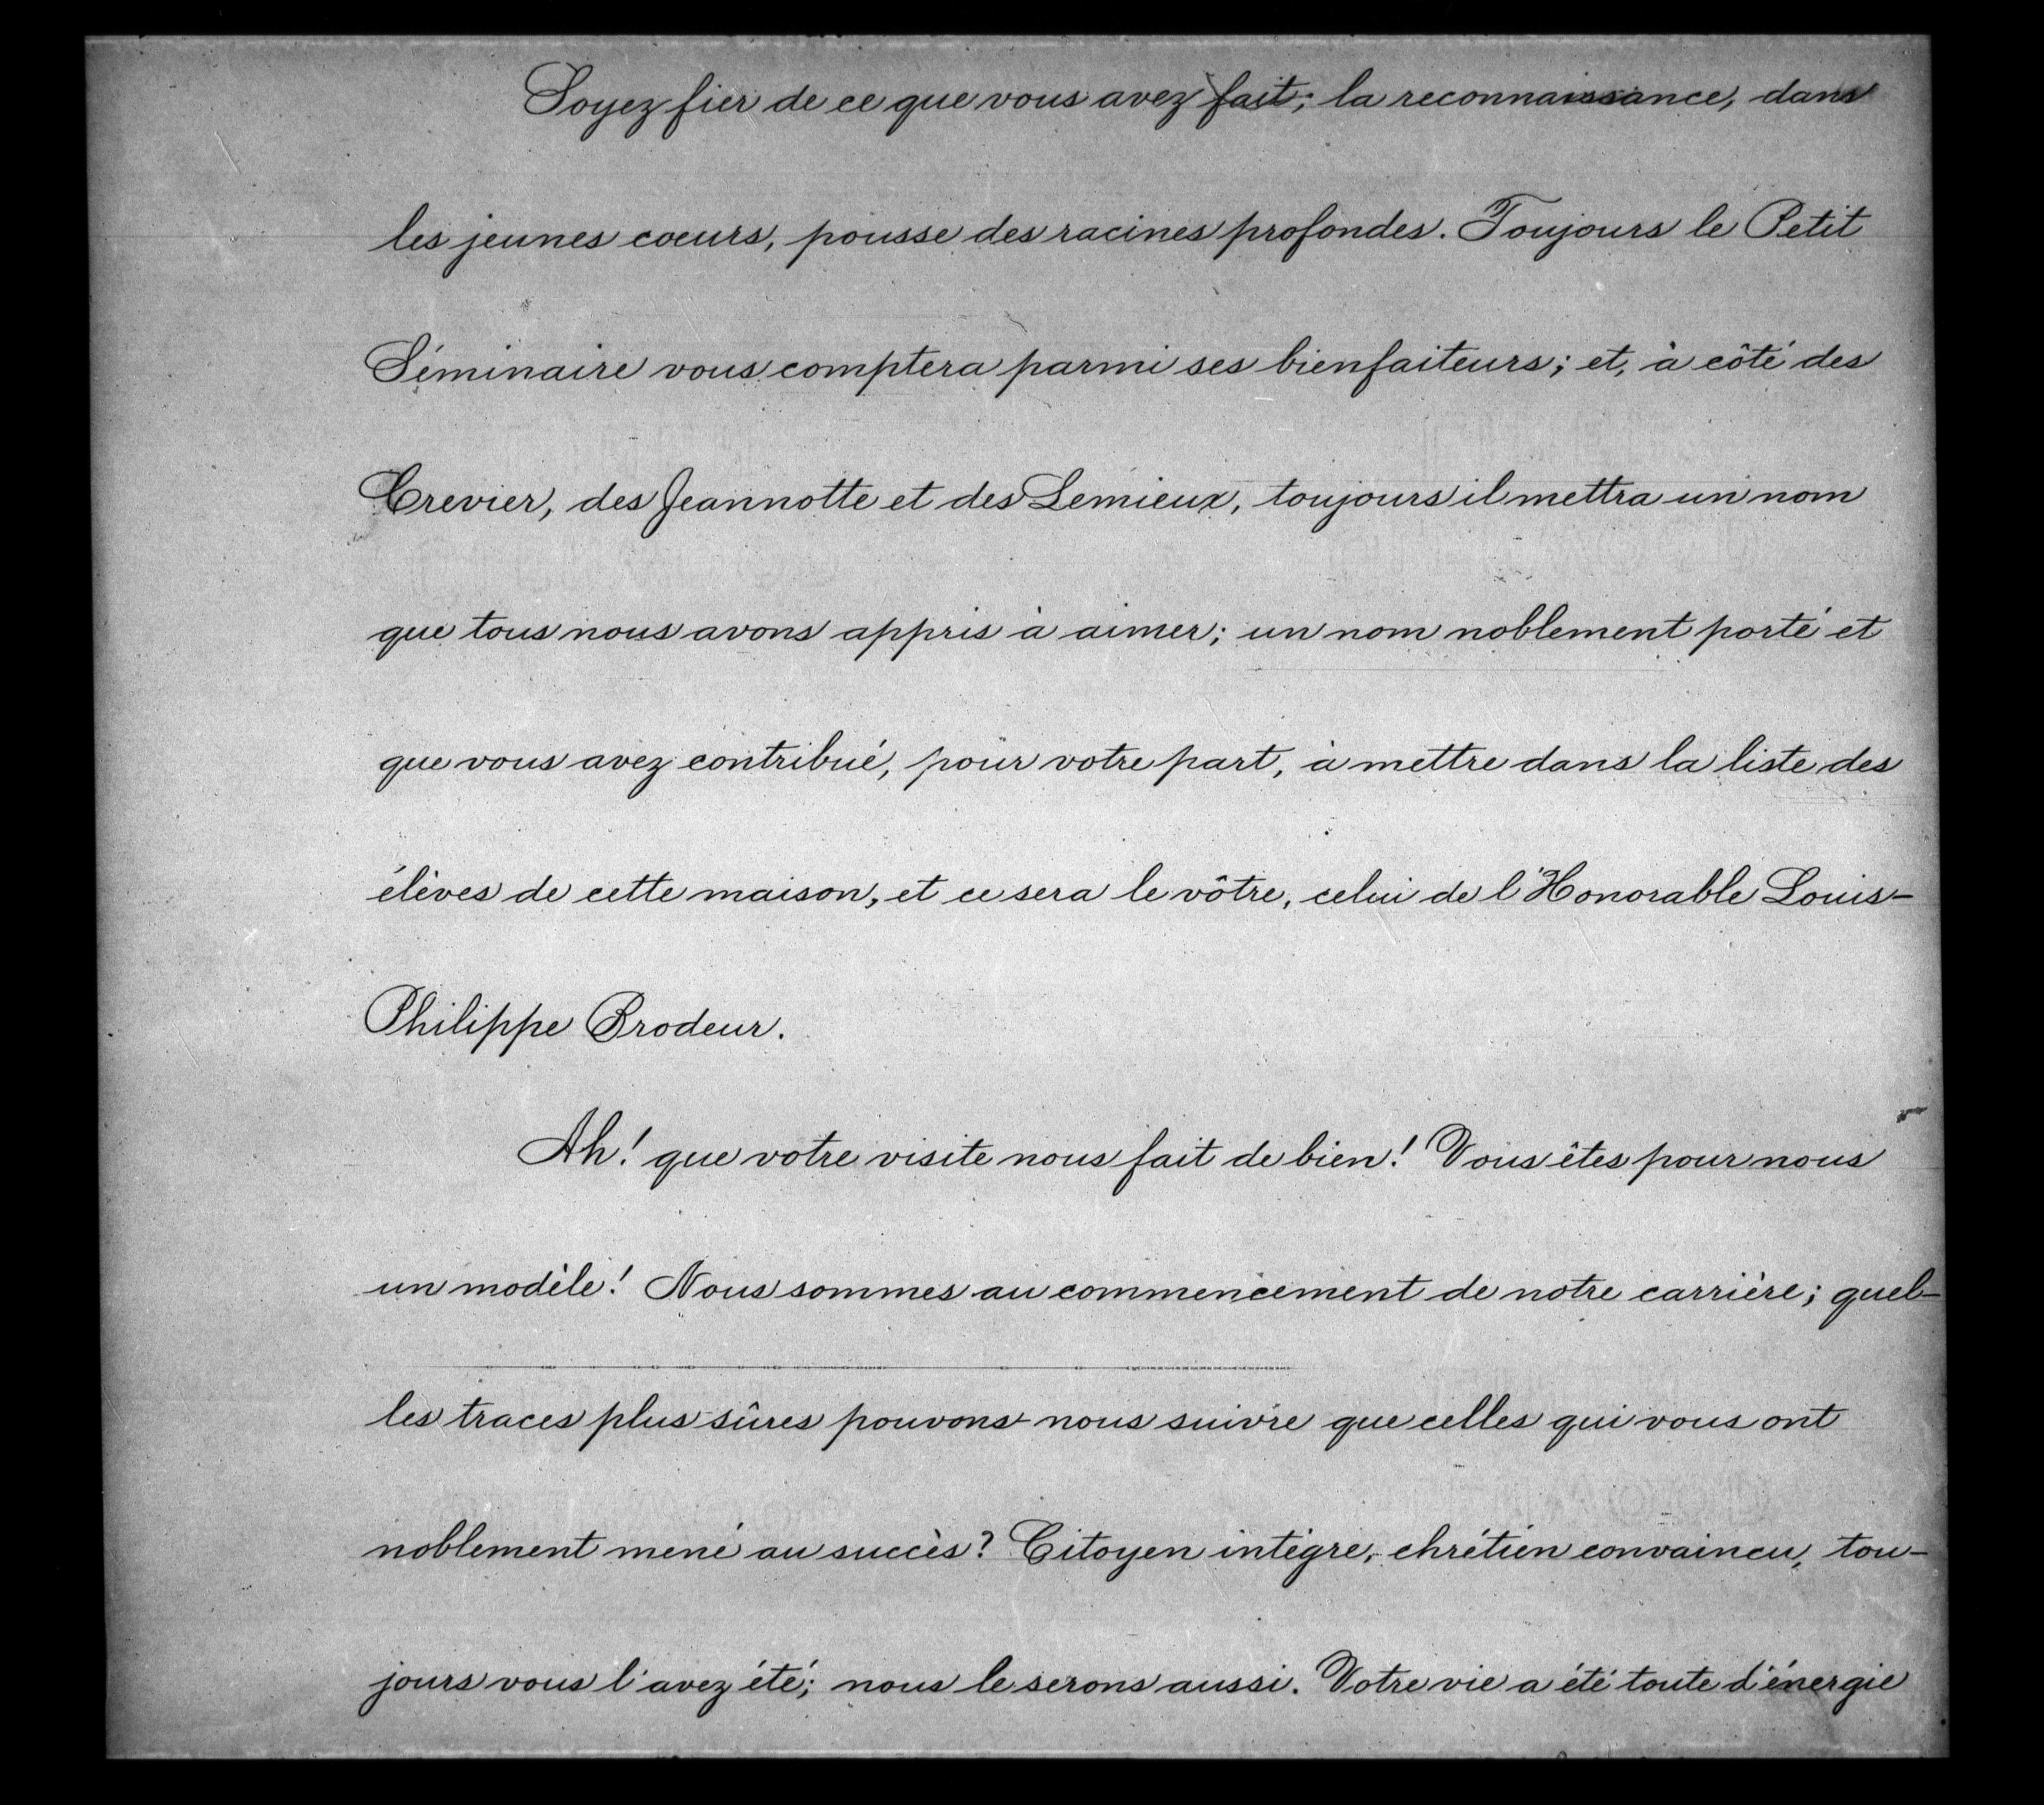 Soyez fier de ce que vous avez fait; la reconnaissance, dans
les jeunes coeurs, pousse des racines profondes. Toujours le Petit
Séminaire vous comptera parmi ses bienfaiteurs; et, à côté des
Crevier, des Jeannotte et des Lemieux, toujours il mettra un nom
que tous nous avons appris à aimer; un nom noblement porté et
que vous avez contribué, pour votre part, à mettre dans la liste des
élèves de cette maison, et ce sera le vôtre, celui de l'Honorable Louis-
Philippe Brodeur.
Ah! que votre visite nous fait de bien! Vous êtes pour nous
un modèle! Nous sommes au commencement de notre carrière; quel-
les traces plus sûres pouvons-nous suivre que celles qui vous ont
noblement mené au succès? Citoyen intègre, chrétien convaincu, tou-
jours vous l'avez été; nous le serons aussi. Votre vie a été toute d'énergie